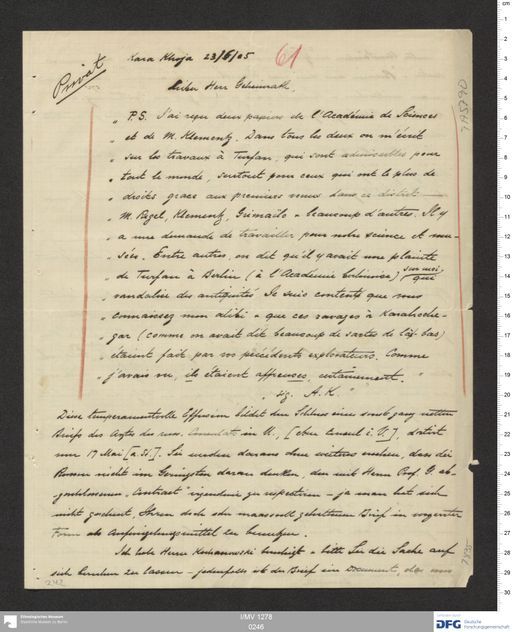 Kara Khoja 23/6/05
61
Privat
Lieber Herr Geheimrath,
„ P.S. J'ai reçu deux papiers de l'Académie de Sciences
„ et de M. Klementz. Dans tous les deux on m'écrit
„ sur les travaux à Turfan, qui sont admissibles pour
„ tout le monde, surtout pour ceux qui ont le plus de
„ droits grace aux premiers venus dans ce district
„ M. Regel, Klementz, Grimailo + beaucoup d'autres. Il y
„ a une demande de travailler pour notre science et mu-
„ sées. Entre autres, on dit qu'il y avait une plainte
„ de Turfan à Berlin (à l'Académie ) sur moi, qui
„ vandalise des antiquités Je suis contents que vous
„ connaissez mon alibi + que ces ravages à Karakhodja-
„ gar (comme on avait dit beaucoup de sartes de là-bas)
„ étaient fait par vos précédents explorateurs. Comme
„ j'avais vu, ils étaient affreuses, certainement. "
„ sig. A.K. "
Diese temperamentvolle Effusion bildet den Schluss eines sonst ganz netten
Briefs des Arztes des russ. Consulats in U., [eben Consul i. U.], datirt
vom 17 Mai [a. St.]. Sie werden daraus ohne weiteres ersehen, dass die
Russen nicht im Geringsten daran denken, den mit Herrn Prof. G. ab-
geschlossenen „Contract" irgendwie zu respectiren - ja man hat sich
nicht gescheut, Ihren doch sehr maassvoll gehaltenen Brief in
Form als Aufwiegelungsmittel zu benutzen.
Ich habe Herrn Kochanowski beruhigt + bitte Sie die Sache auf
sich beruhen zu lassen - jedenfalls ist der Brief ein Document, das uns
242
I/MV 1278
0246
Ethnologisches Museum
Staatliche Museen zu Berlin
DFG
Deutsche
Forschungsgemeinschaft
cm
1
2
3
4
5
6
7
8
9
10
11
12
13
14
15
16
17
18
19
20
21
22
23
24
25
26
27
28
29
30